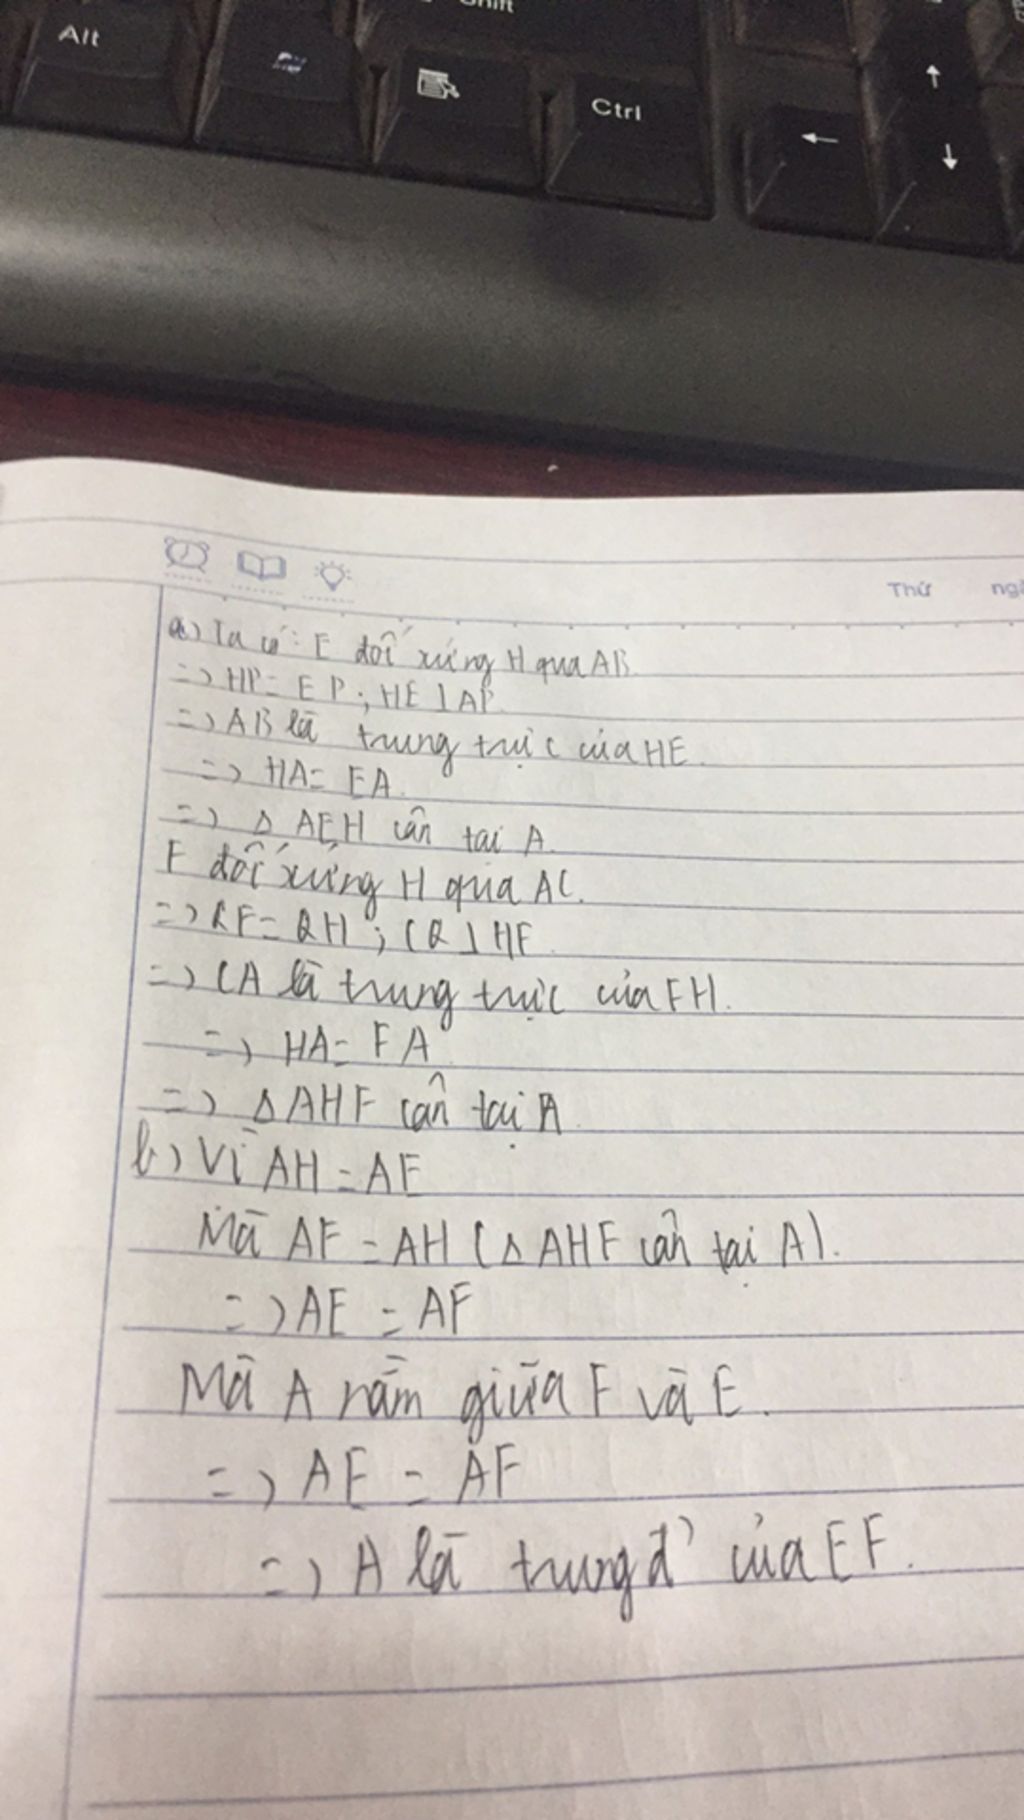 Shift
Alt
Ctrl
← ↑
↓
Thứ
a) Ta có: E đối xứng H qua AB
=> HP = EP; HE ⊥ AP
=> AB là trung trực của HE
=> HA = EA
=> Δ AEH cân tại A.
F đối xứng H qua AC.
=> QF = QH; CQ ⊥ HF
=> CA là trung trực của FH.
=> HA = FA
=> Δ AHF cân tại A
b) Vì AH = AE
Mà AF = AH (Δ AHF cân tại A).
=> AE = AF
Mà A nằm giữa F và E.
=> AE = AF
=> A là trung đ' của EF.